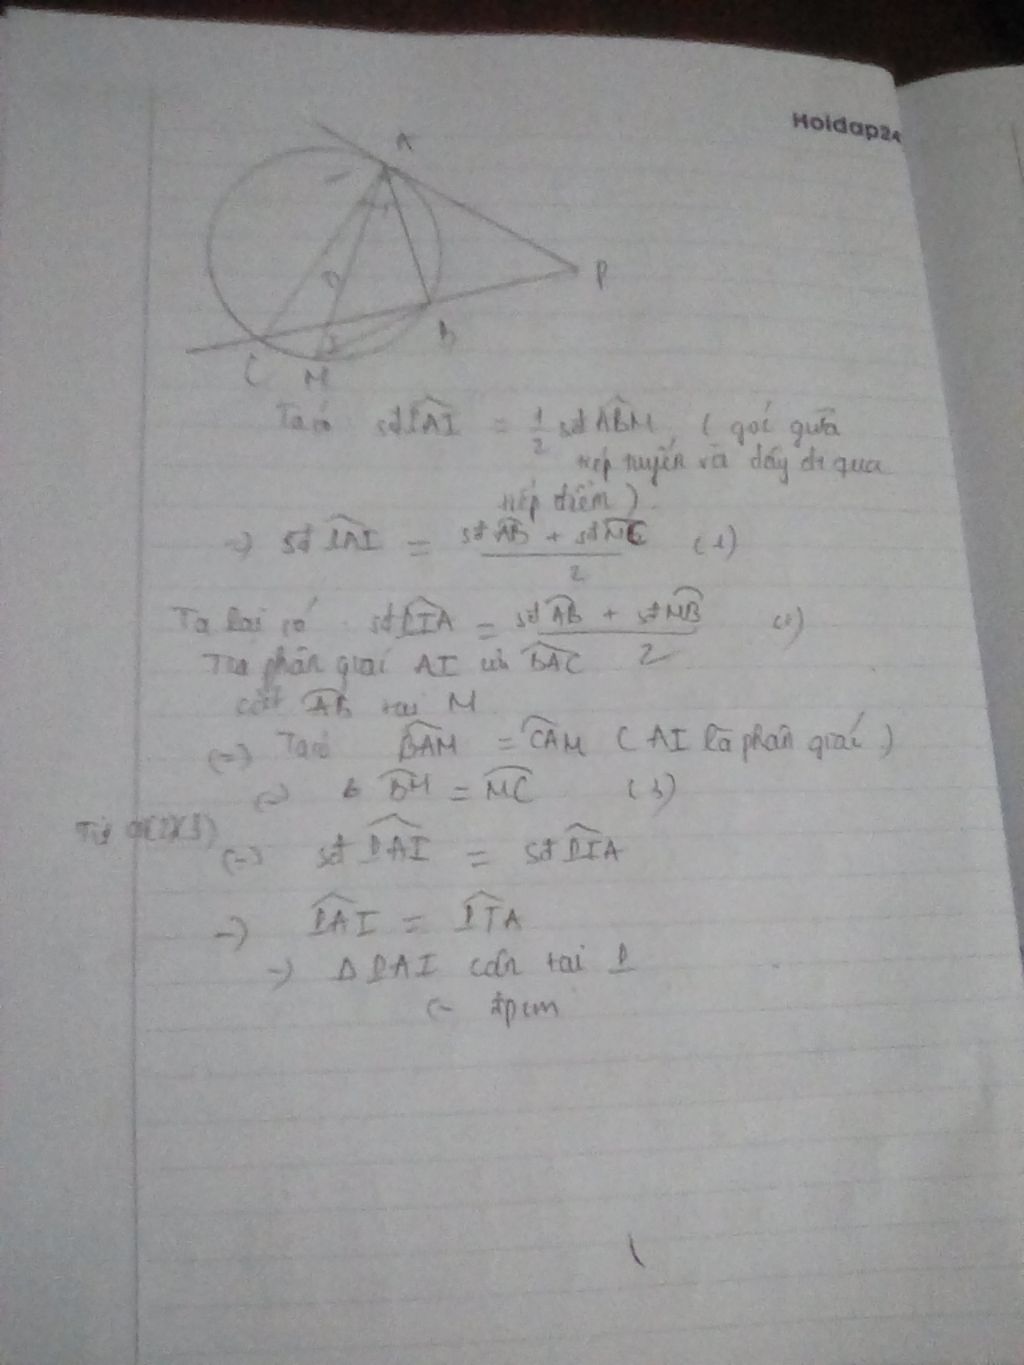 Hoidap24
A
P
B
C M
Ta có sđ PAI = 1/2 sđ ABM ( góc giữa
tiếp tuyến và dây đi qua
tiếp điểm )
=> sđ PAI = (sđ AB + sđ MC)/2 (1)
Ta lại có sđ PIA = (sđ AB + sđ MB)/2
phân giác AI của BAC
cắt AB tại M
(=) Ta có BAM = CAM ( AI là phân giác )
=> BM = MC (3)
Từ (2)(3)
(=) sđ PAI = sđ PIA
=> PAI = PIA
=> Δ PAI cân tại P
đpcm